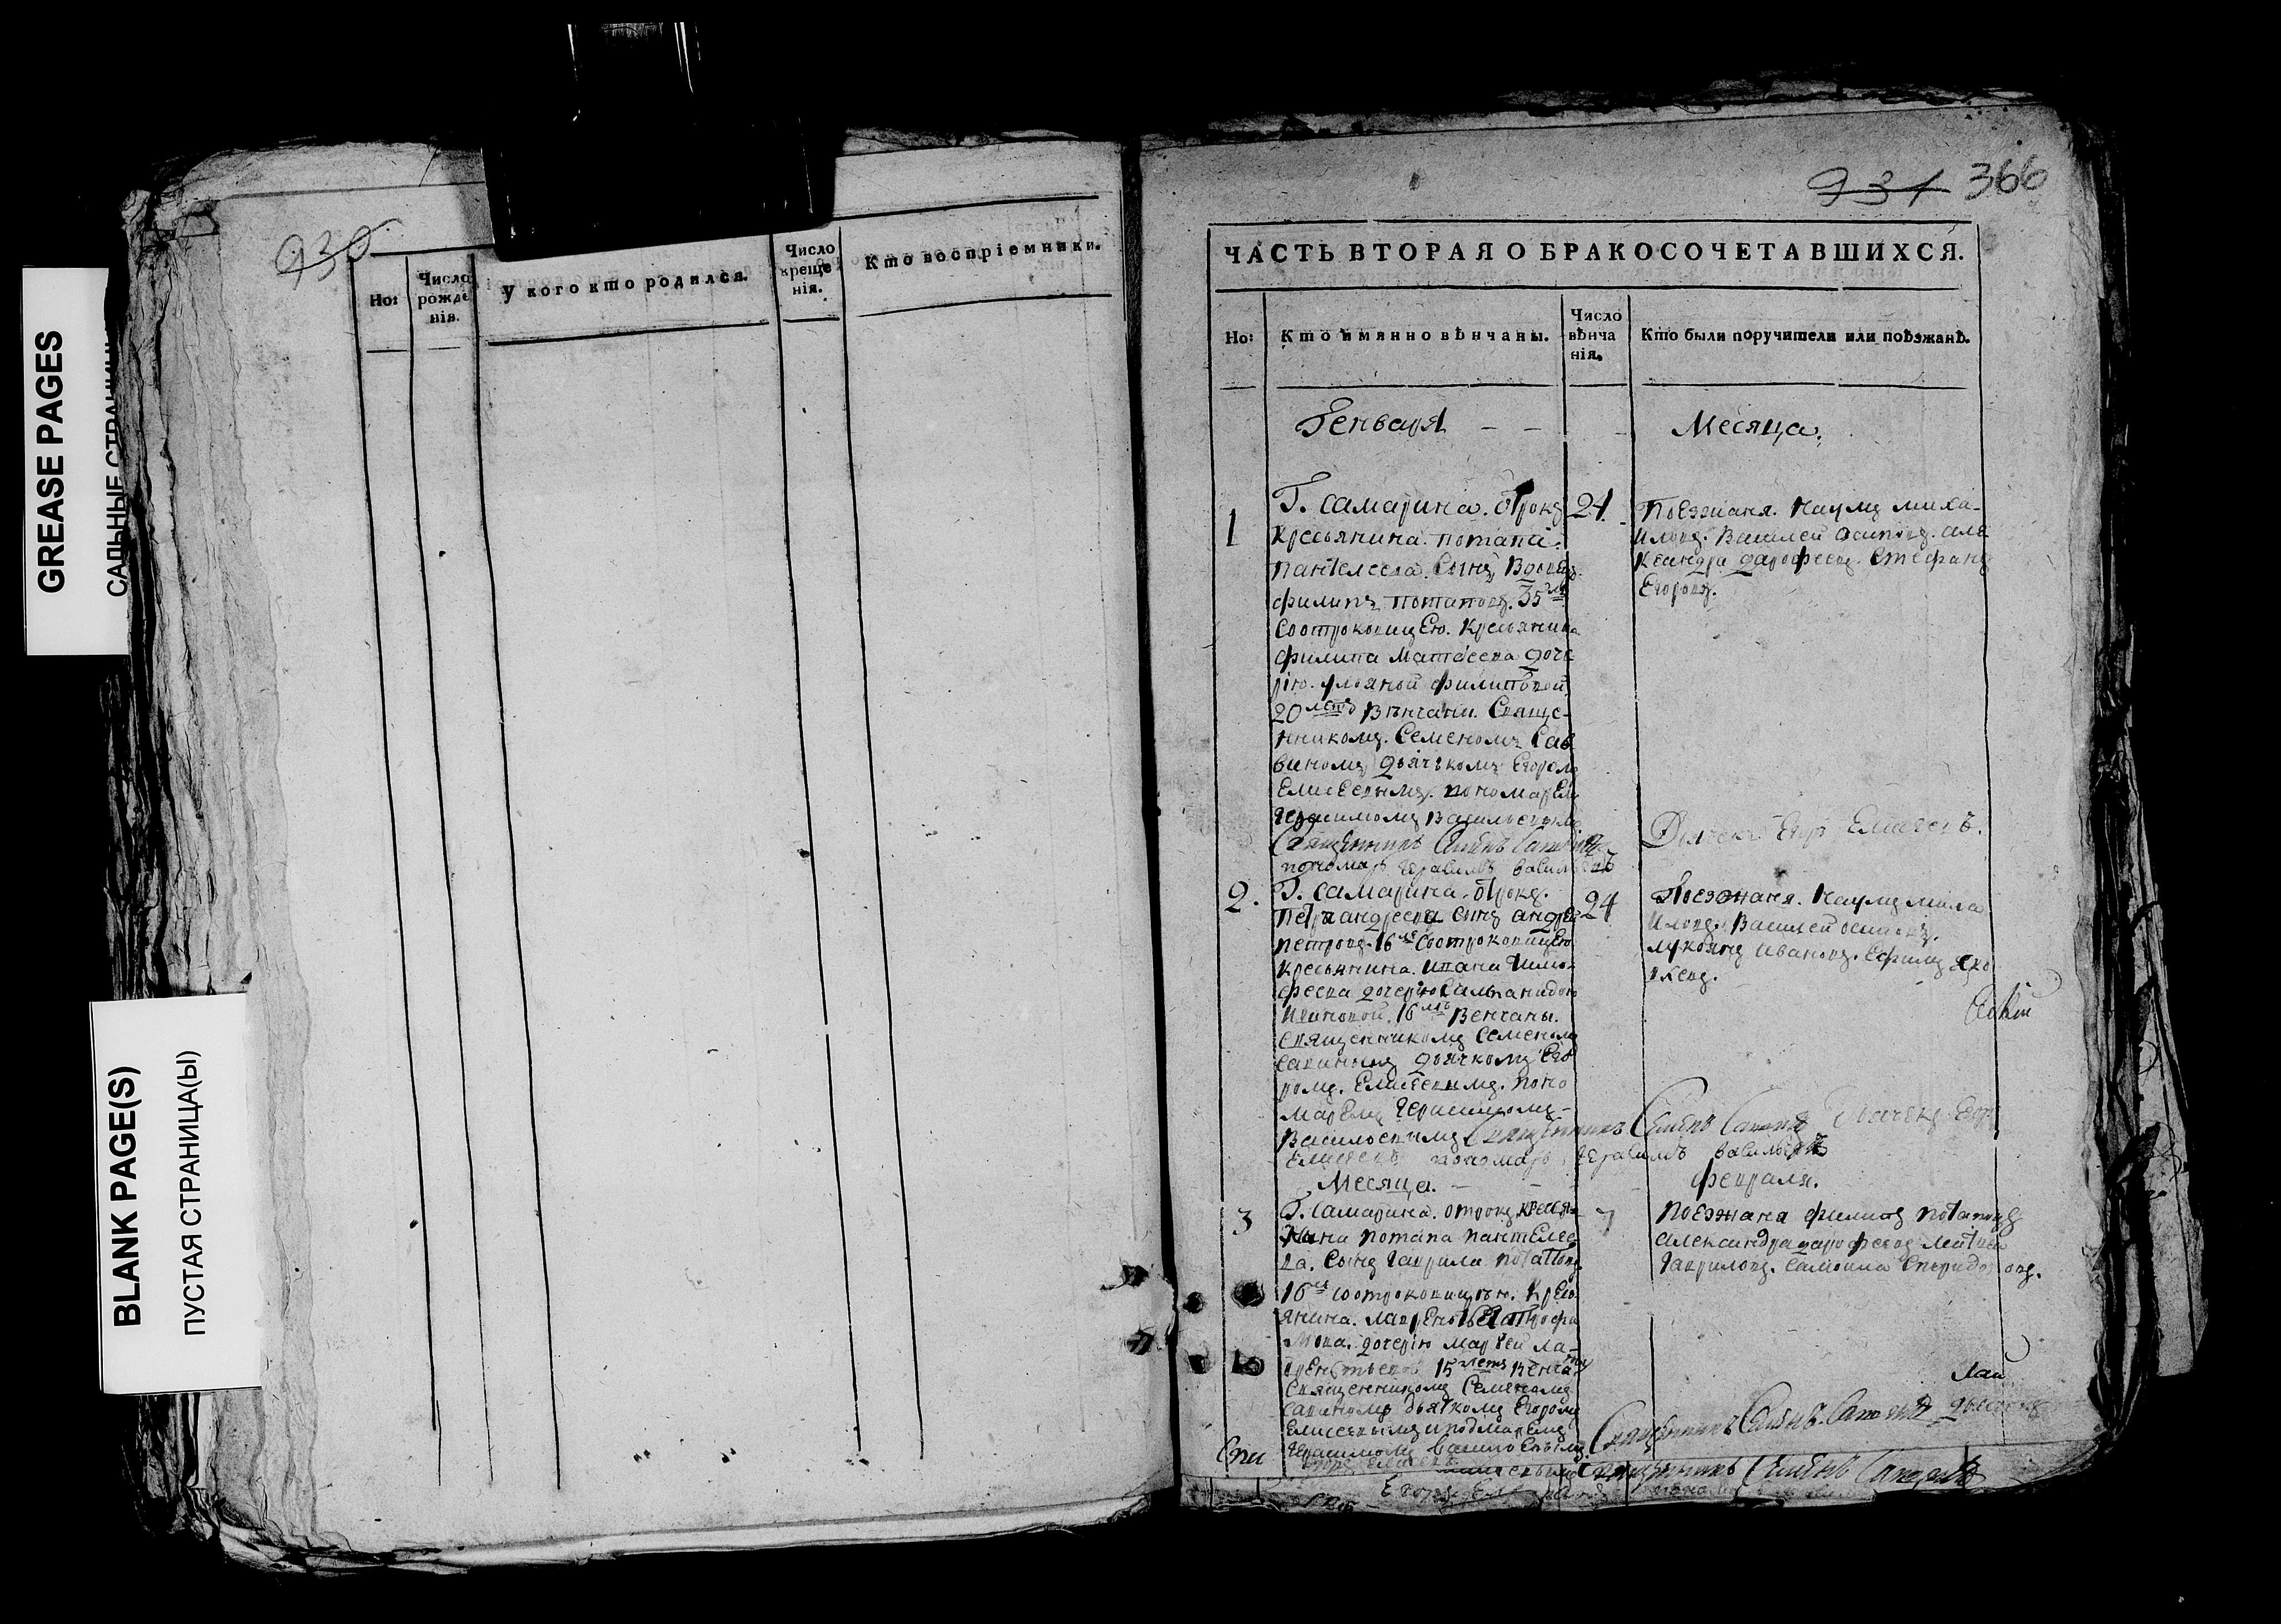 GREASE PAGES
САЛЬНЫЕ
BLANK PAGE(S)
ПУСТАЯ СТРАНИЦА(Ы)
930
Но:
Число рожденія.
У кого кто родился.
Число крещенія.
Кто воспріемники.
931 366
ЧАСТЬ ВТОРАЯ О БРАКОСОЧЕТАВШИХСЯ.
Но:
Кто имянно вѣнчаны.
Число вѣнчанія.
Кто были поручители или поѣзжанѣ.
Генваря Месяца.
1
Г. Самарина. отрокъ
Кресьянина потапа
пантелеева. Сынъ
филипъ потаповъ. 35
Соотроковицею. Кресьянина
филипа Матвеева доче
рію. ульяной филиповой
20 летъ Венчани. Свяще-
нникомъ. Семеномъ Сав
виномъ дьячькомъ Егоромъ
Елисеевымъ. пономаремъ
Герасимомъ Васильевымъ
Священникъ Семенъ Саввинъ
пономарь Герасимъ Васильевъ
24
Поезжаня. Наумъ миха-
иловъ. Василей осиповъ. але
ксандра дарофеевъ. Стефанъ
Егоровъ.
Дьячекъ Егоръ Елисеевъ.
2.
Г. Самарина. отрокъ.
Петра андреева сынъ андрей
петровъ. 16 Соотроковицею
Кресьянина. ивана Тимо-
феева дочерію
Ивановой. 16 Венчаны.
Священникомъ Семеномъ
Савинымъ дьячкомъ Его
ромъ. Елисеевымъ. поно
маремъ Герасимомъ-
Васильевымъ Священникъ Семенъ Саввинъ Дьячекъ Егоръ
Елисеевъ пономарь Герасимъ Васильевъ
24
Поезжаня. Наумъ миха
иловъ. Василей осиповъ.
лукоянъ ивановъ. Ефимъ
Месяца. февраля.
3
Г. Самарина. отрокъ кресья-
нина потапа пантелее
ва. Сынъ Гаврила потаповъ
16 соотроковицею. Кресь
янина. лаврентья трофи
мова. дочерію марьей ла-
врентьевой 15 летъ Венчаны
Священникомъ Семеномъ
Савиномъ дьячкомъ Егоромъ
Елисеевымъ пономаремъ
Герасимомъ Васильевымъ
7
Поезжана филипъ потаповъ
александра дарофеевъ матвей
Гавриловъ. самоила Спиридоновъ.
Священникъ Семенъ Саввинъ
Священникъ Семенъ Саввинъ